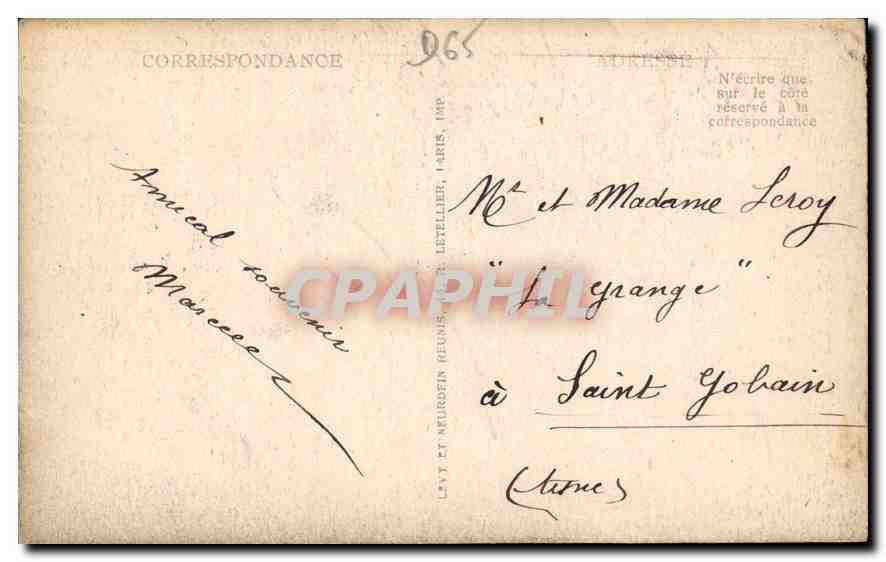 CORRESPONDANCE
D65
ADRESSE
N'écrire que
sur le côté
réservé à la
correspondance
Amical souvenir
Marcel
LEVY ET NEURDEIN REUNIS, LETELLIER, PARIS, IMP.
Mr et Madame Leroy
"La Grange"
à Saint Gobain
(Aisne)
CPAPHIL